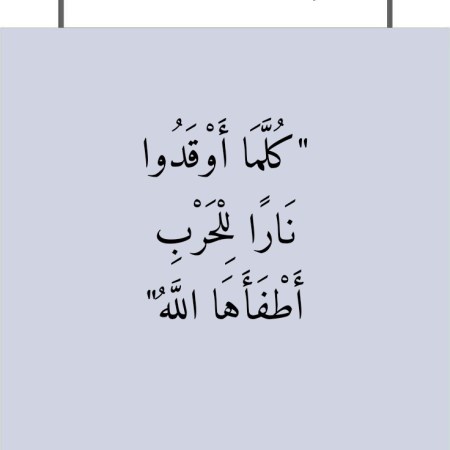 "كُلَّمَا أَوْقَدُوا
نَارًا لِلْحَرْبِ
أَطْفَأَهَا اللَّهُ"